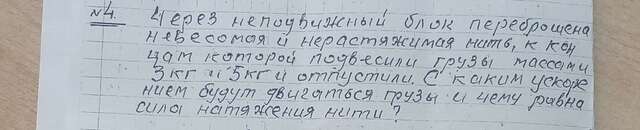 №4. Через неподвижный блок переброшена
невесомая и нерастяжимая нить, к кон
цам которой подвесили грузы массами
3кг и 5кг и отпустили. С каким ускоре
нием будут двигаться грузы и чему равна
сила натяжения нити?